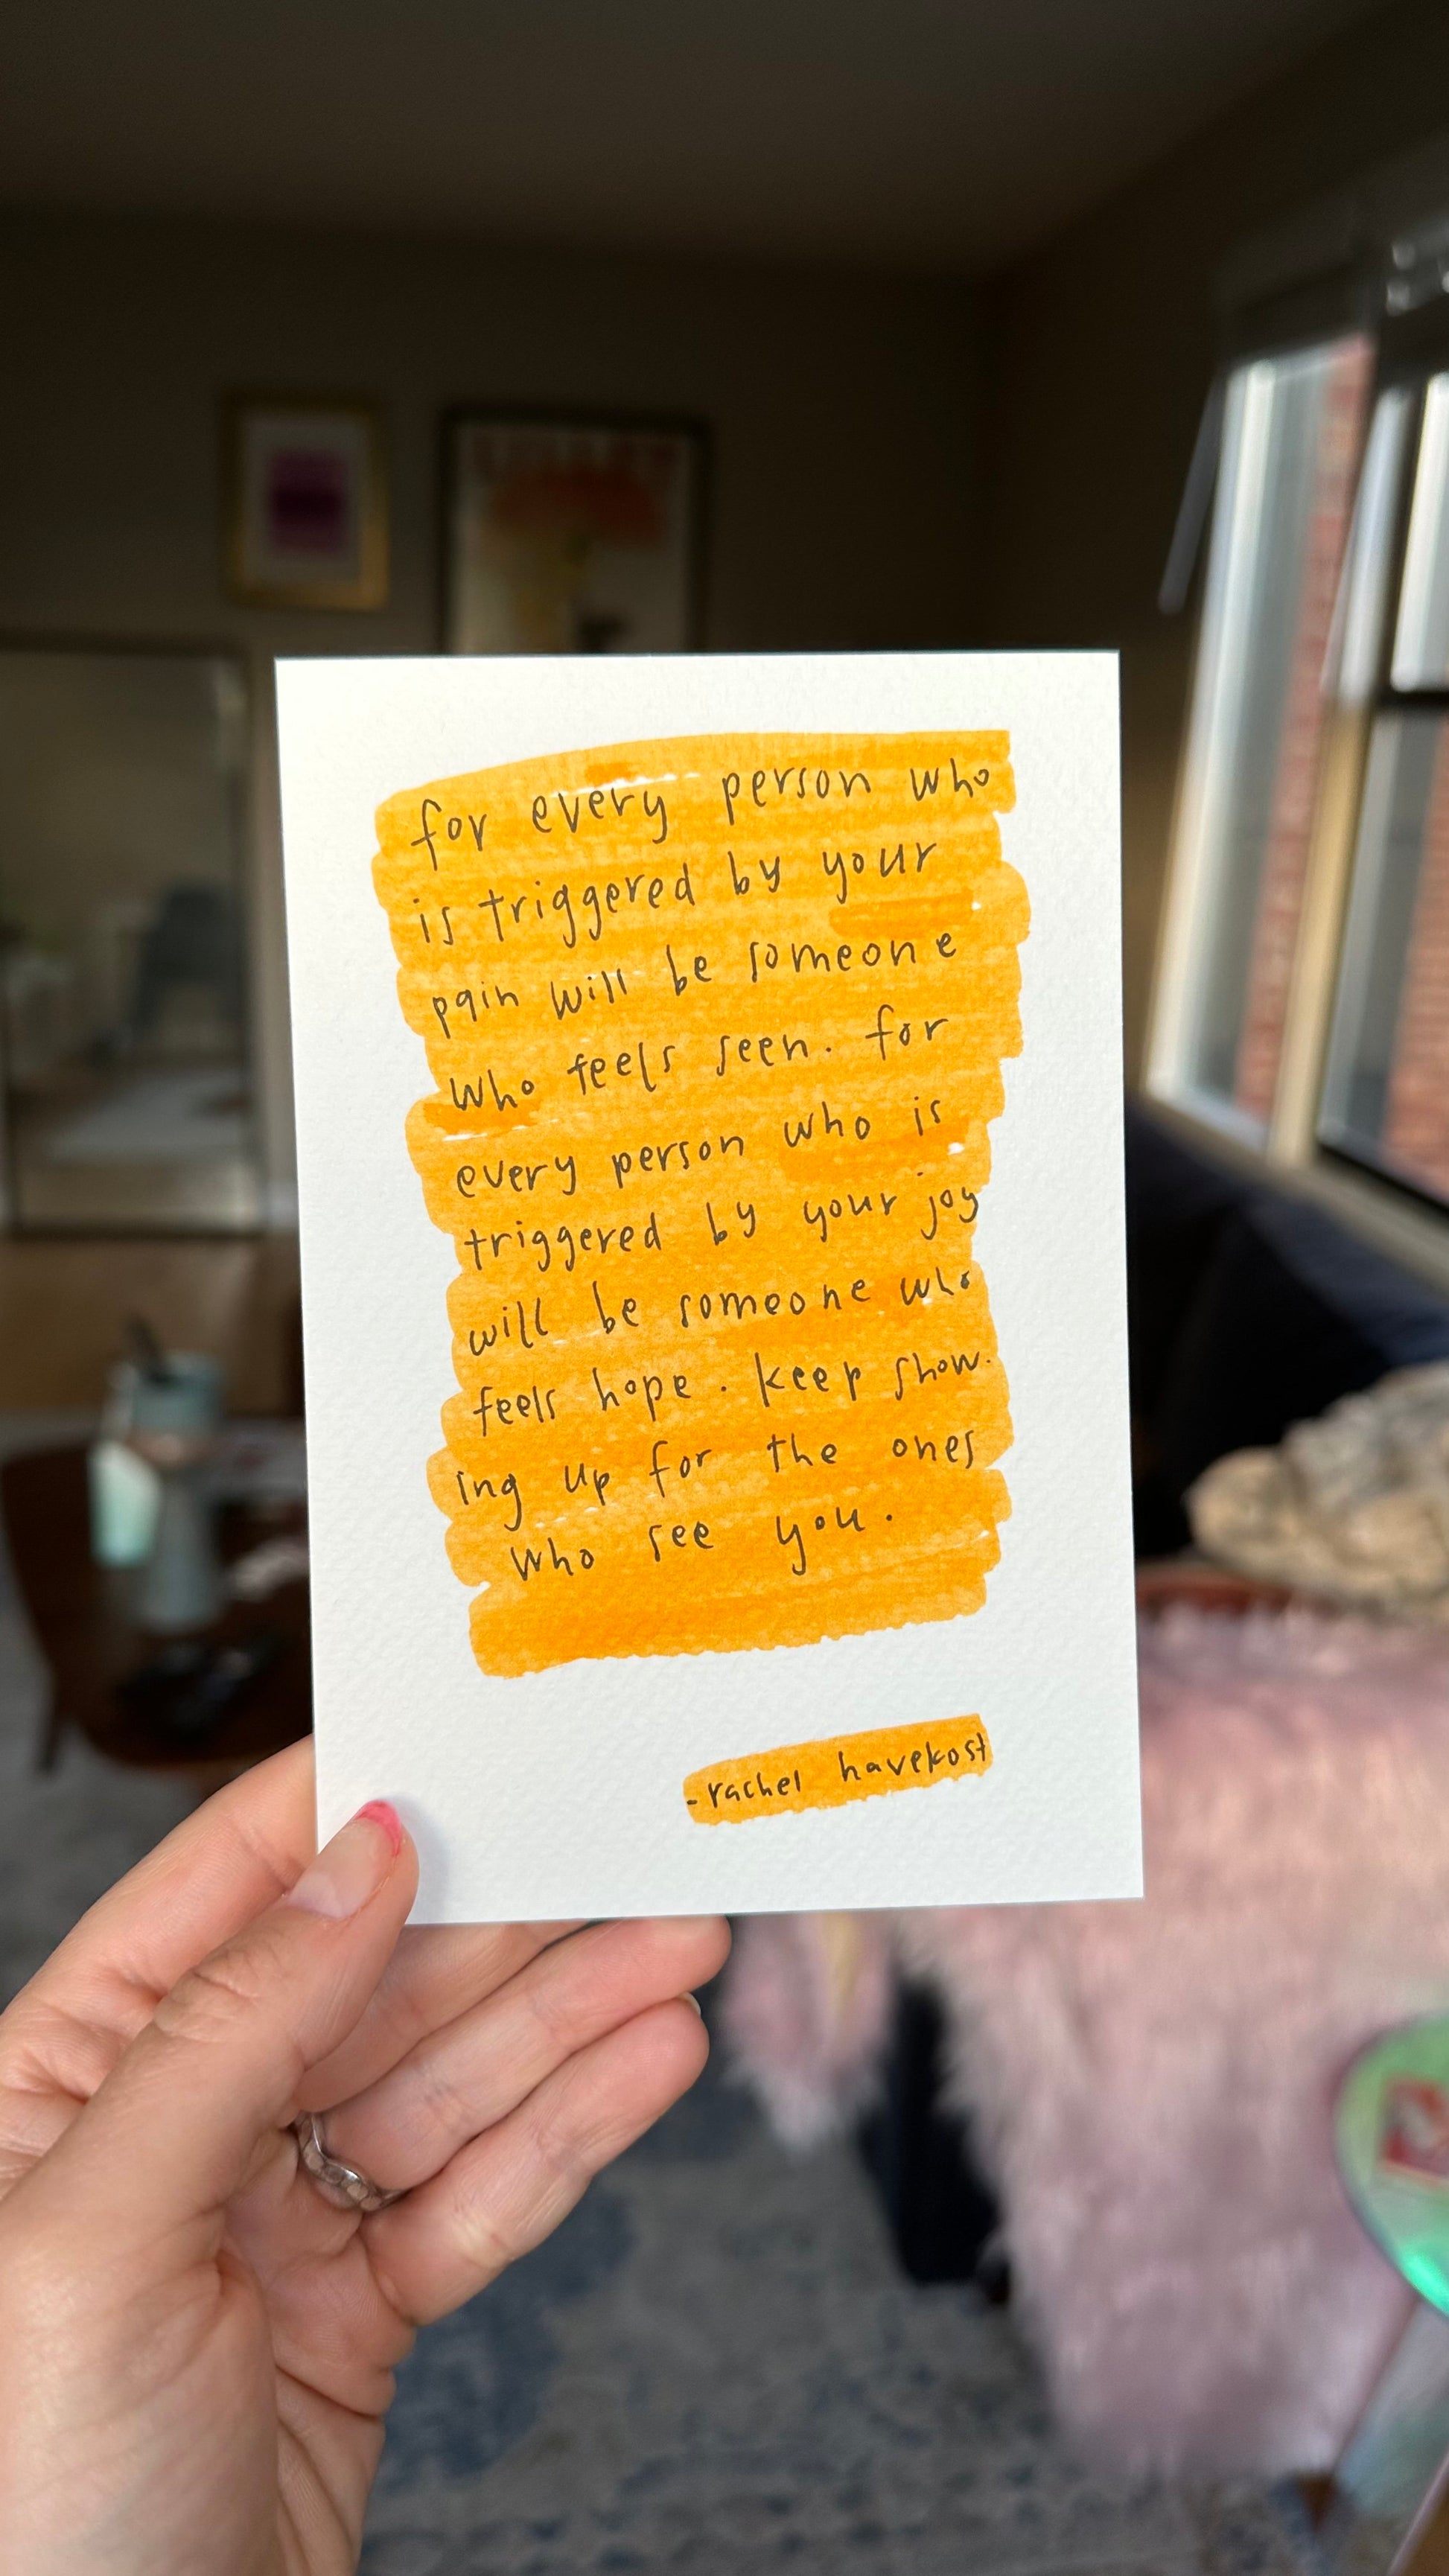 for every person who
is triggered by your
pain will be someone
who feels seen. for
every person who is
triggered by your joy
will be someone who
feels hope. keep show-
ing up for the ones
who see you.
-rachel havekost